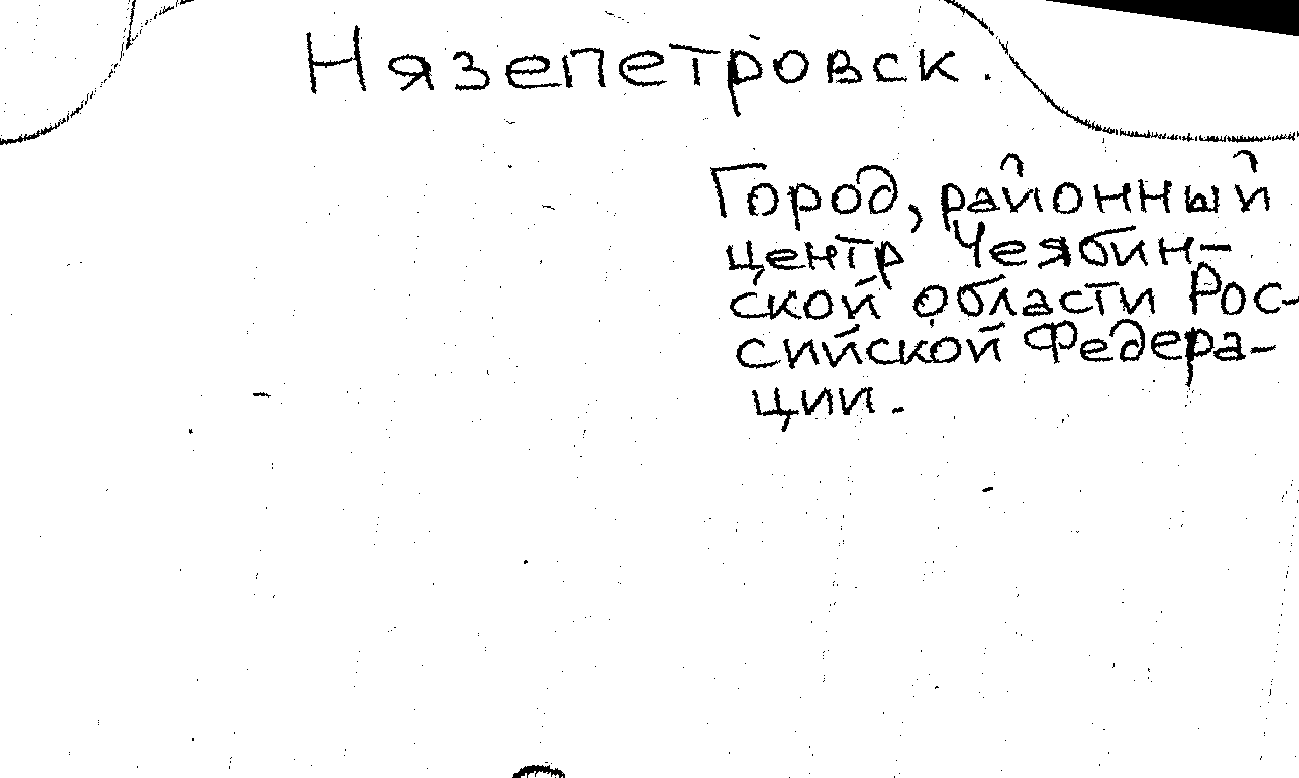 Нязепетровск.
Город, районный
центр Чеябин-
ской области Рос-
сийской Федера-
ции.